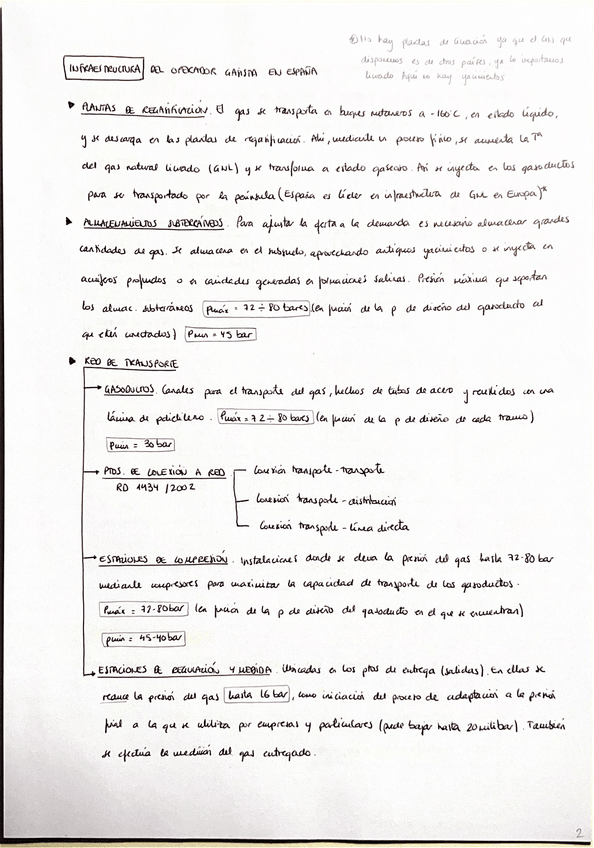 ⊛ No hay plantas de licuación ya que el GNL que
disponemos es de otros países, ya lo importamos
licuado Aquí no hay yacimientos
INFRAESTRUCTURA DEL OPERADOR GASISTA EN ESPAÑA
▸ PLANTAS DE REGASIFICACIÓN. El gas se transporta en buques metaneros a -160°C, en estado líquido,
y se descarga en las plantas de regasificación. Ahí, mediante un proceso físico, se aumenta la Tª
del gas natural licuado (GNL) y se transforma a estado gaseoso. Así se inyecta en los gasoductos
para ser transportado por la península (España es líder en infraestructura de GNL en Europa)*
▸ ALMACENAMIENTOS SUBTERRÁNEOS. Para ajustar la oferta a la demanda es necesario almacenar grandes
cantidades de gas. Se almacena en el subsuelo, aprovechando antiguos yacimientos o se inyecta en
acuíferos profundos o en cavidades generadas en formaciones salinas. Presión máxima que soportan
los almac. subterráneos Pmáx = 72 ÷ 80 bares (en función de la p de diseño del gasoducto al
que estén conectados) Pmin = 45 bar
▸ RED DE TRANSPORTE
→ GASODUCTOS. Canales para el transporte del gas, hechos de tubos de acero y revestidos con una
lámina de polietileno. Pmáx = 72 ÷ 80 bares (en función de la p de diseño de cada tramo)
Pmin = 30 bar
→ PTOS. DE CONEXIÓN A RED
RD 1434/2002
Conexión transporte - transporte
Conexión transporte - distribución
Conexión transporte - línea directa
→ ESTACIONES DE COMPRESIÓN. Instalaciones donde se eleva la presión del gas hasta 72-80 bar
mediante compresores para maximizar la capacidad de transporte de los gasoductos.
Pmáx = 72-80 bar (en función de la p de diseño del gasoducto en el que se encuentran)
pmin = 45-40 bar
→ ESTACIONES DE REGULACIÓN Y MEDIDA. Ubicadas en los ptos de entrega (salidas). En ellas se
reduce la presión del gas hasta 16 bar, como iniciación del proceso de adaptación a la presión
final a la que se utiliza por empresas y particulares (puede bajar hasta 20 milibar). También
se efectúa la medición del gas entregado.
2